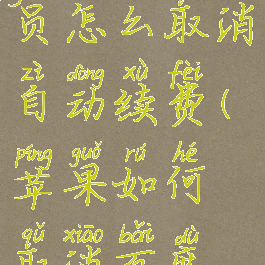 员怎么取消
zì dòng xù fèi
自动续费(
píng guǒ rú hé
苹果如何
qǔ xiāo bǎi dù
取消百度